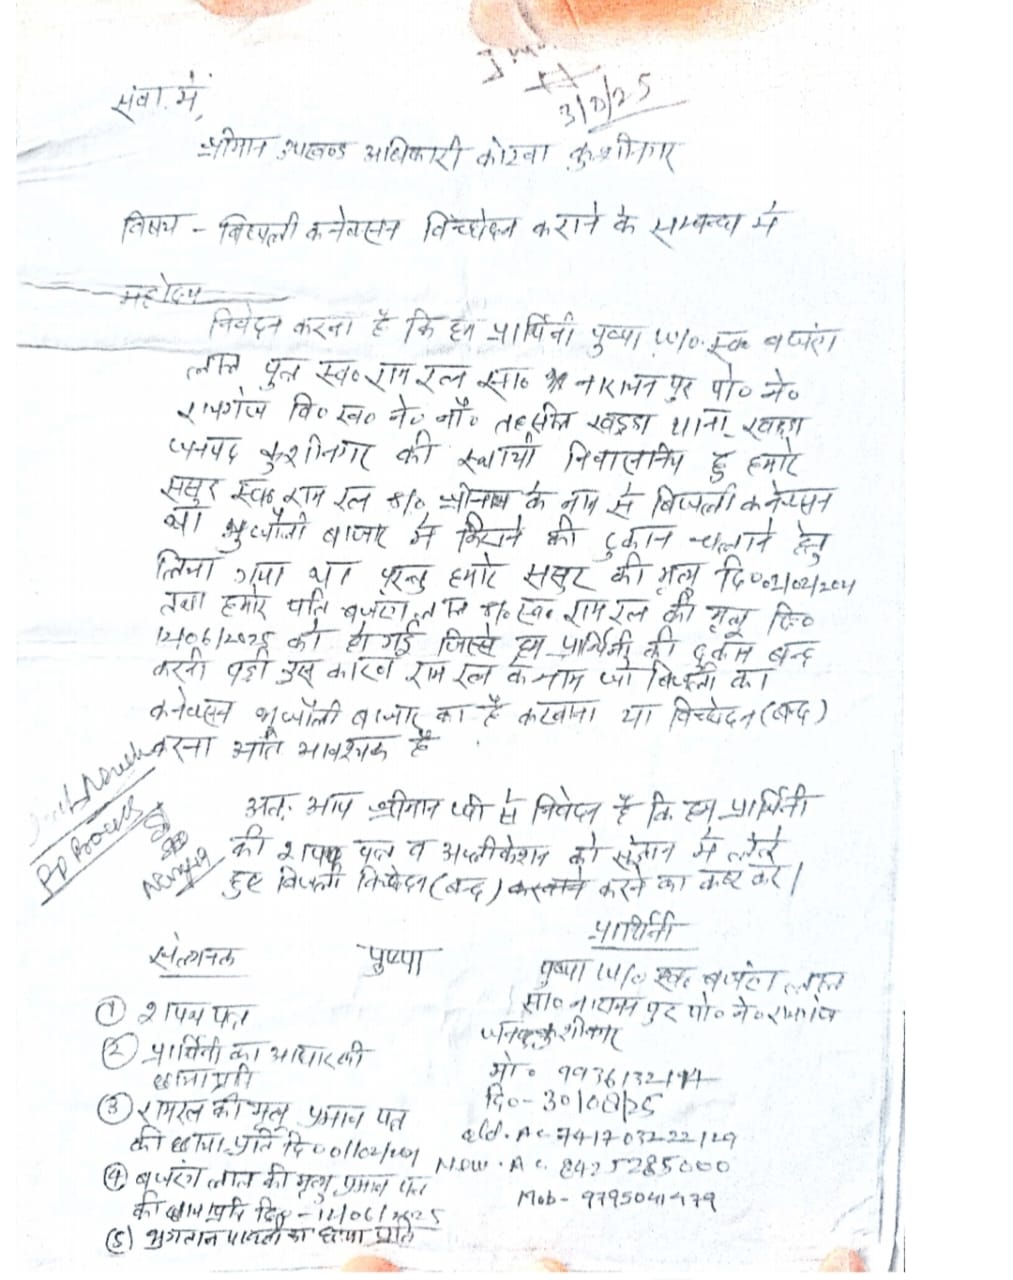 3/9/25
सेवा में,
श्रीमान उपखण्ड अधिकारी कोटवा कुशीनगर
विषय - बिजली कनेक्सन विच्छेदन कराने के सम्बन्ध में
महोदय
निवेदन करना है कि हम प्रार्थिनी पुष्पा W/o. स्व० बजरंग
लाल पुत्र स्व० राम रत्न सा० नारायन पुर पो० ने०
रायगंज वि० ख० ने० नौ० तहसील खड्डा थाना खड्डा
जनपद कुशीनगर की स्थायी निवासनीय हु हमारे
ससुर स्व० राम रत्न S/o श्रीनाथ के नाम से बिजली कनेक्सन
था भुजौली बाजार में किराने की दुकान चलाने हेतु
लिया गया था परन्तु हमारे ससुर की मृत्यु दि०
तथा हमारे पति बजरंग लाल S/o स्व० राम रत्न की मृत्यु दि०
12/06/2025 को हो गई जिससे हम प्रार्थिनी की दुकान बन्द
करनी पड़ी इस कारण राम रत्न के नाम जो बिजली का
कनेक्सन भुजौली बाजार का है करवाना या विच्छेदन (बन्द)
करना अति आवश्यक है
अतः आप श्रीमान जी से निवेदन है कि हम प्रार्थिनी
की शपथ पत्र व अप्लीकेशन को संज्ञान में लेते
हुए बिजली विच्छेदन (बन्द) करवाने करने का कष्ट करे।
PD Process
प्रार्थिनी
संलग्नक पुष्पा
पुष्पा W/o स्व० बजरंग लाल
सा० नारायन पुर पो० ने० रायगंज
जनपद कुशीनगर
① शपथ पत्र
② प्रार्थिनी का आधार की
छाया प्रति
मो०
दि०- 30/08/25
③ रामरत्न की मृत्यु प्रमाण पत्र
की छाया प्रति दि०
old. Ac-
New. Ac. 8425285000
④ बजरंग लाल की मृत्यु प्रमाण पत्र
की छाया प्रति दि० - 12/06/2025
Mob- 9795041479
(5) भुगतान पावती का छाया प्रति